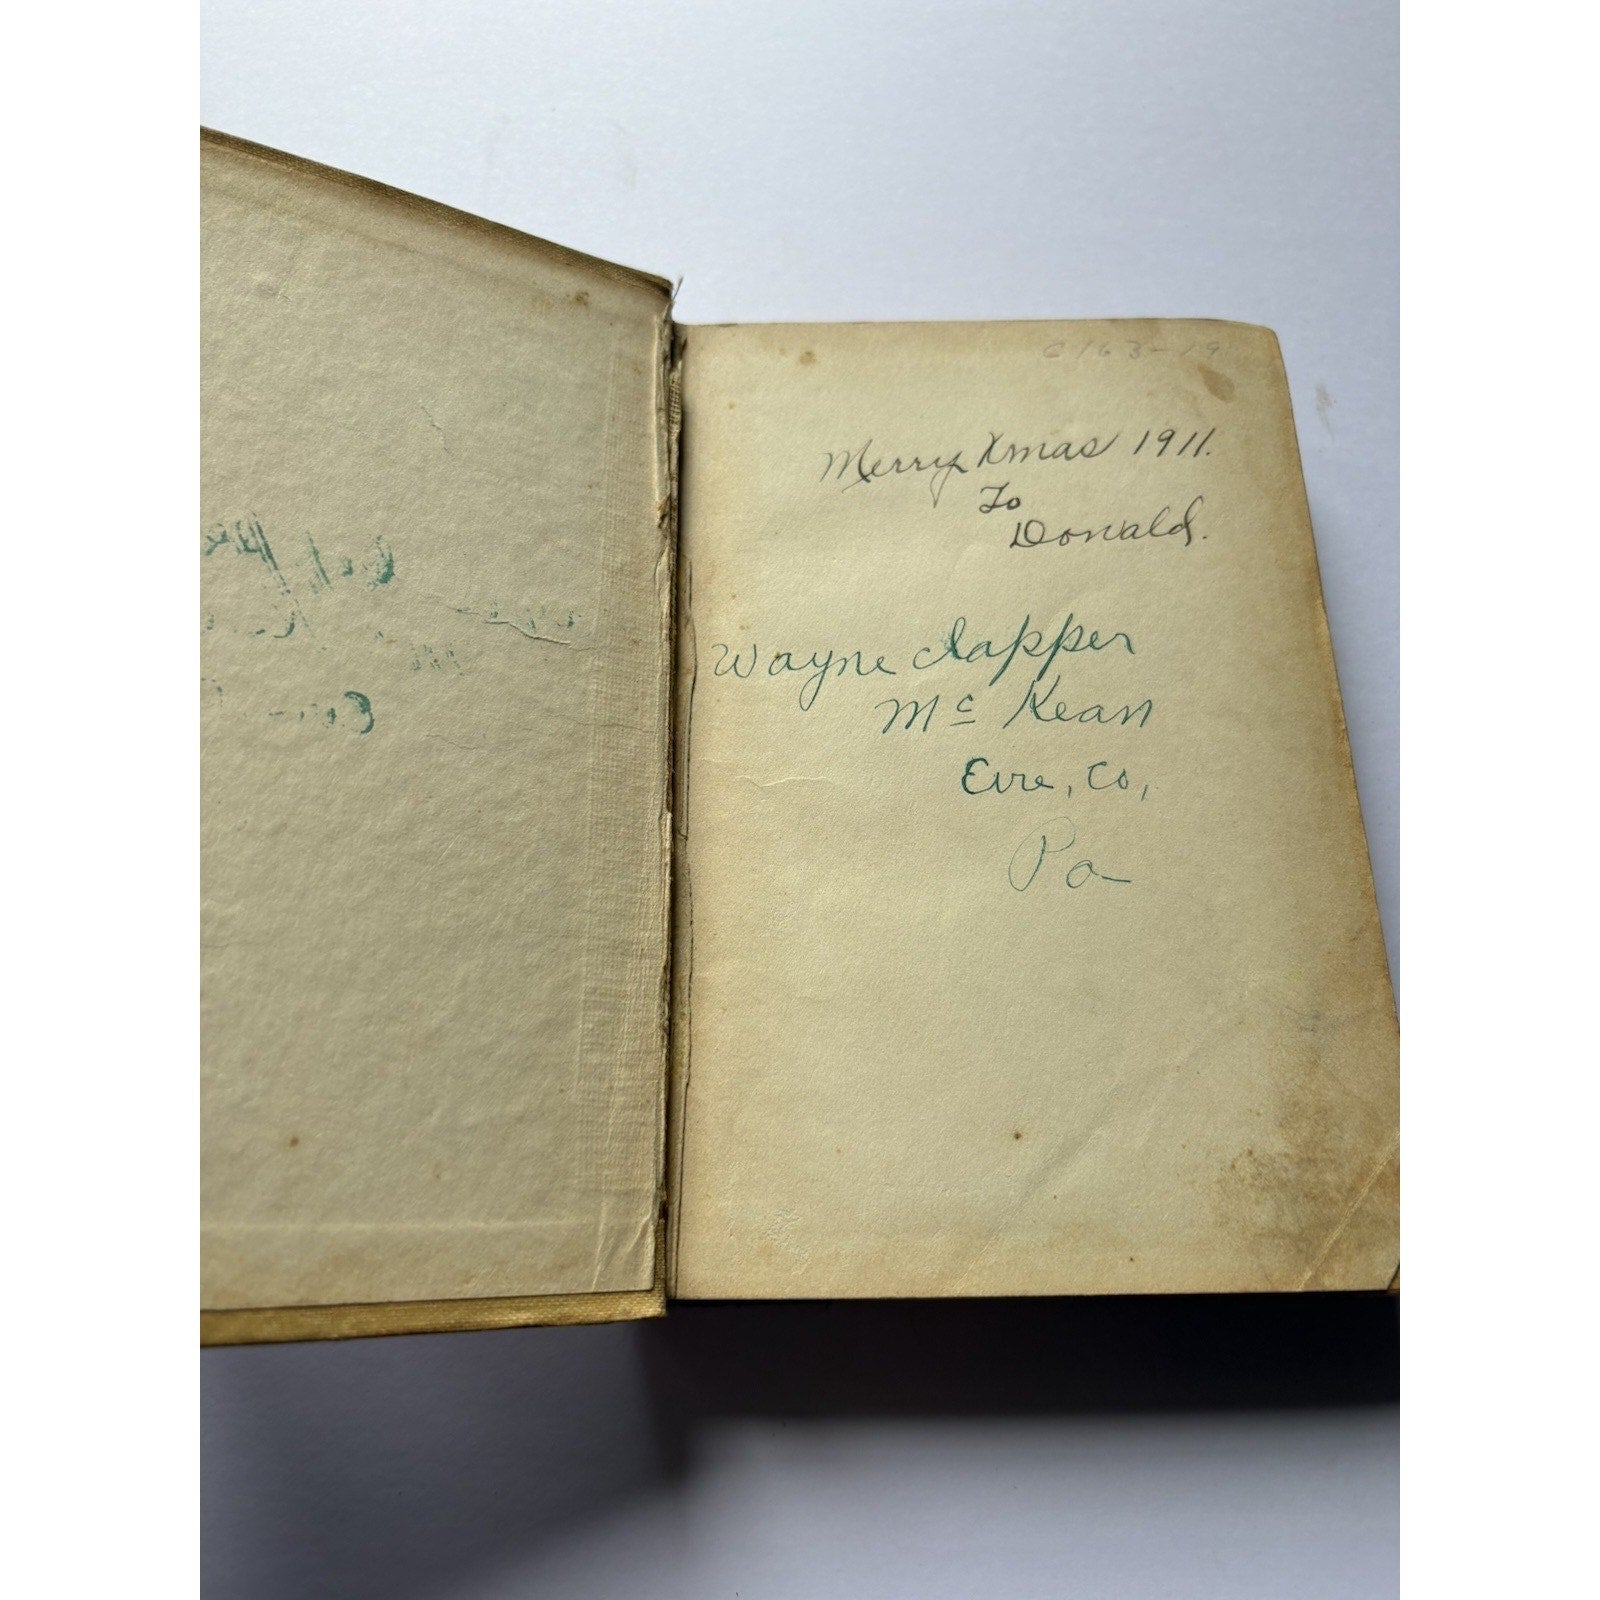 C163-19
Merry Xmas 1911.
To
Donald.
Wayne Clapper
Mc Kean
Erie, Co,
Pa